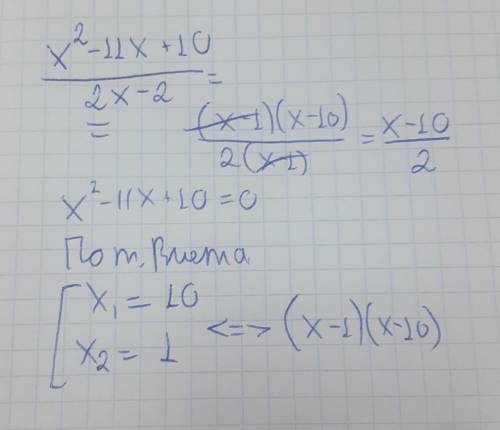 x²-11x+10
――――― =
2x-2
= (x-1)(x-10) / 2(x-1) = x-10 / 2
x²-11x+10=0
По т. Виета
[ x₁ = 10
x₂ = 1 <=> (x-1)(x-10)